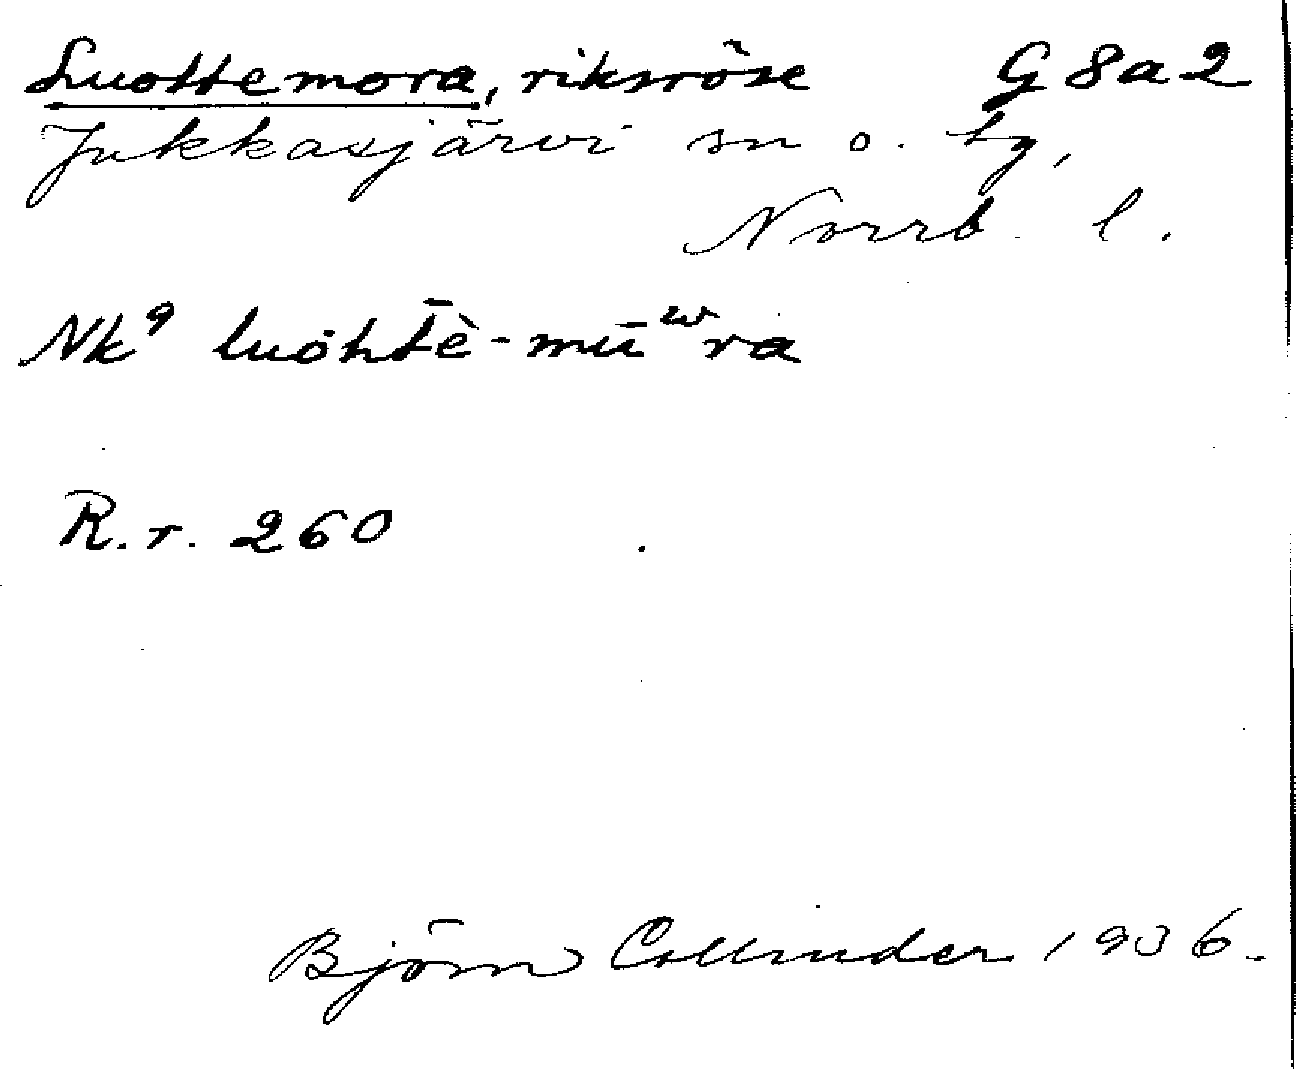 Luottemora, riksröse G 8 a 2
Jukkasjärvi sn o. tg,
Norrb. l.
Nk⁹ luohtḕ-mūʷra
R.r. 260
Björn Collinder 1936.